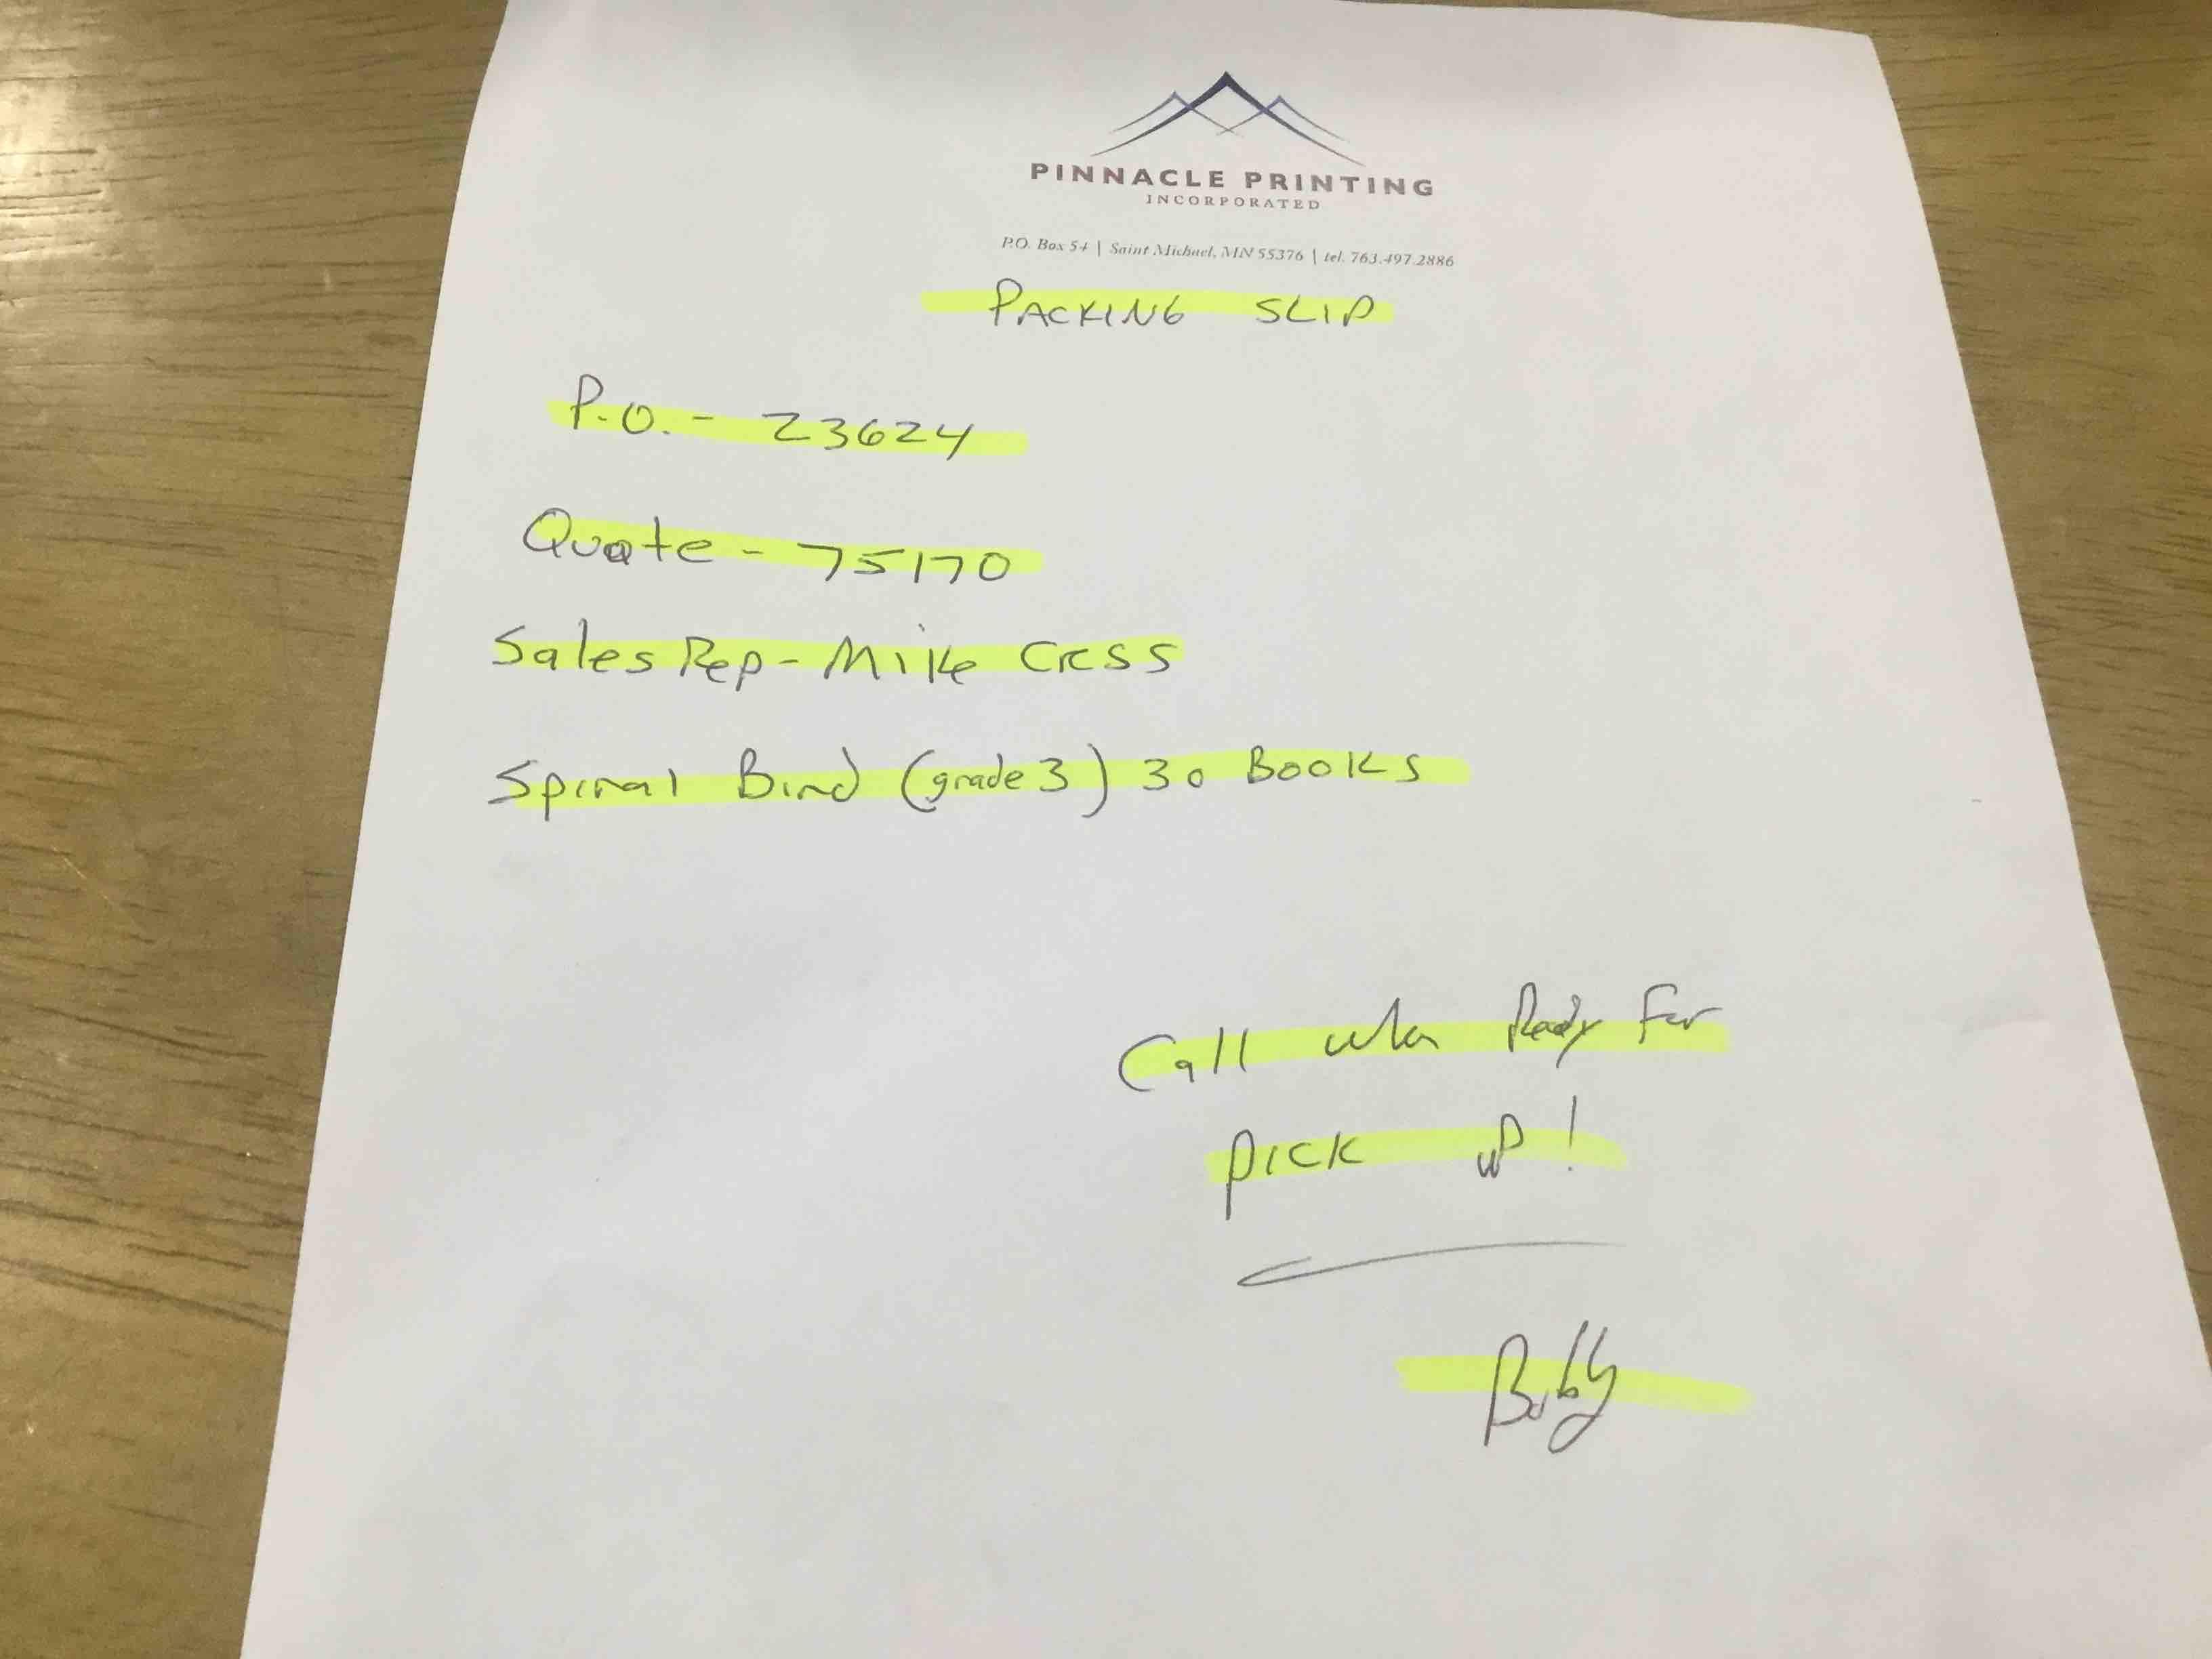 PINNACLE PRINTING
INCORPORATED
P.O. Box 54 | Saint Michael, MN 55376 | tel. 763.497.2886
PACKING SLIP
P.O. - 23624
Quote - 75170
Sales Rep - Mike Cress
Spiral Bind (grade 3) 30 Books
Call when Ready For
pick up!
Bobby